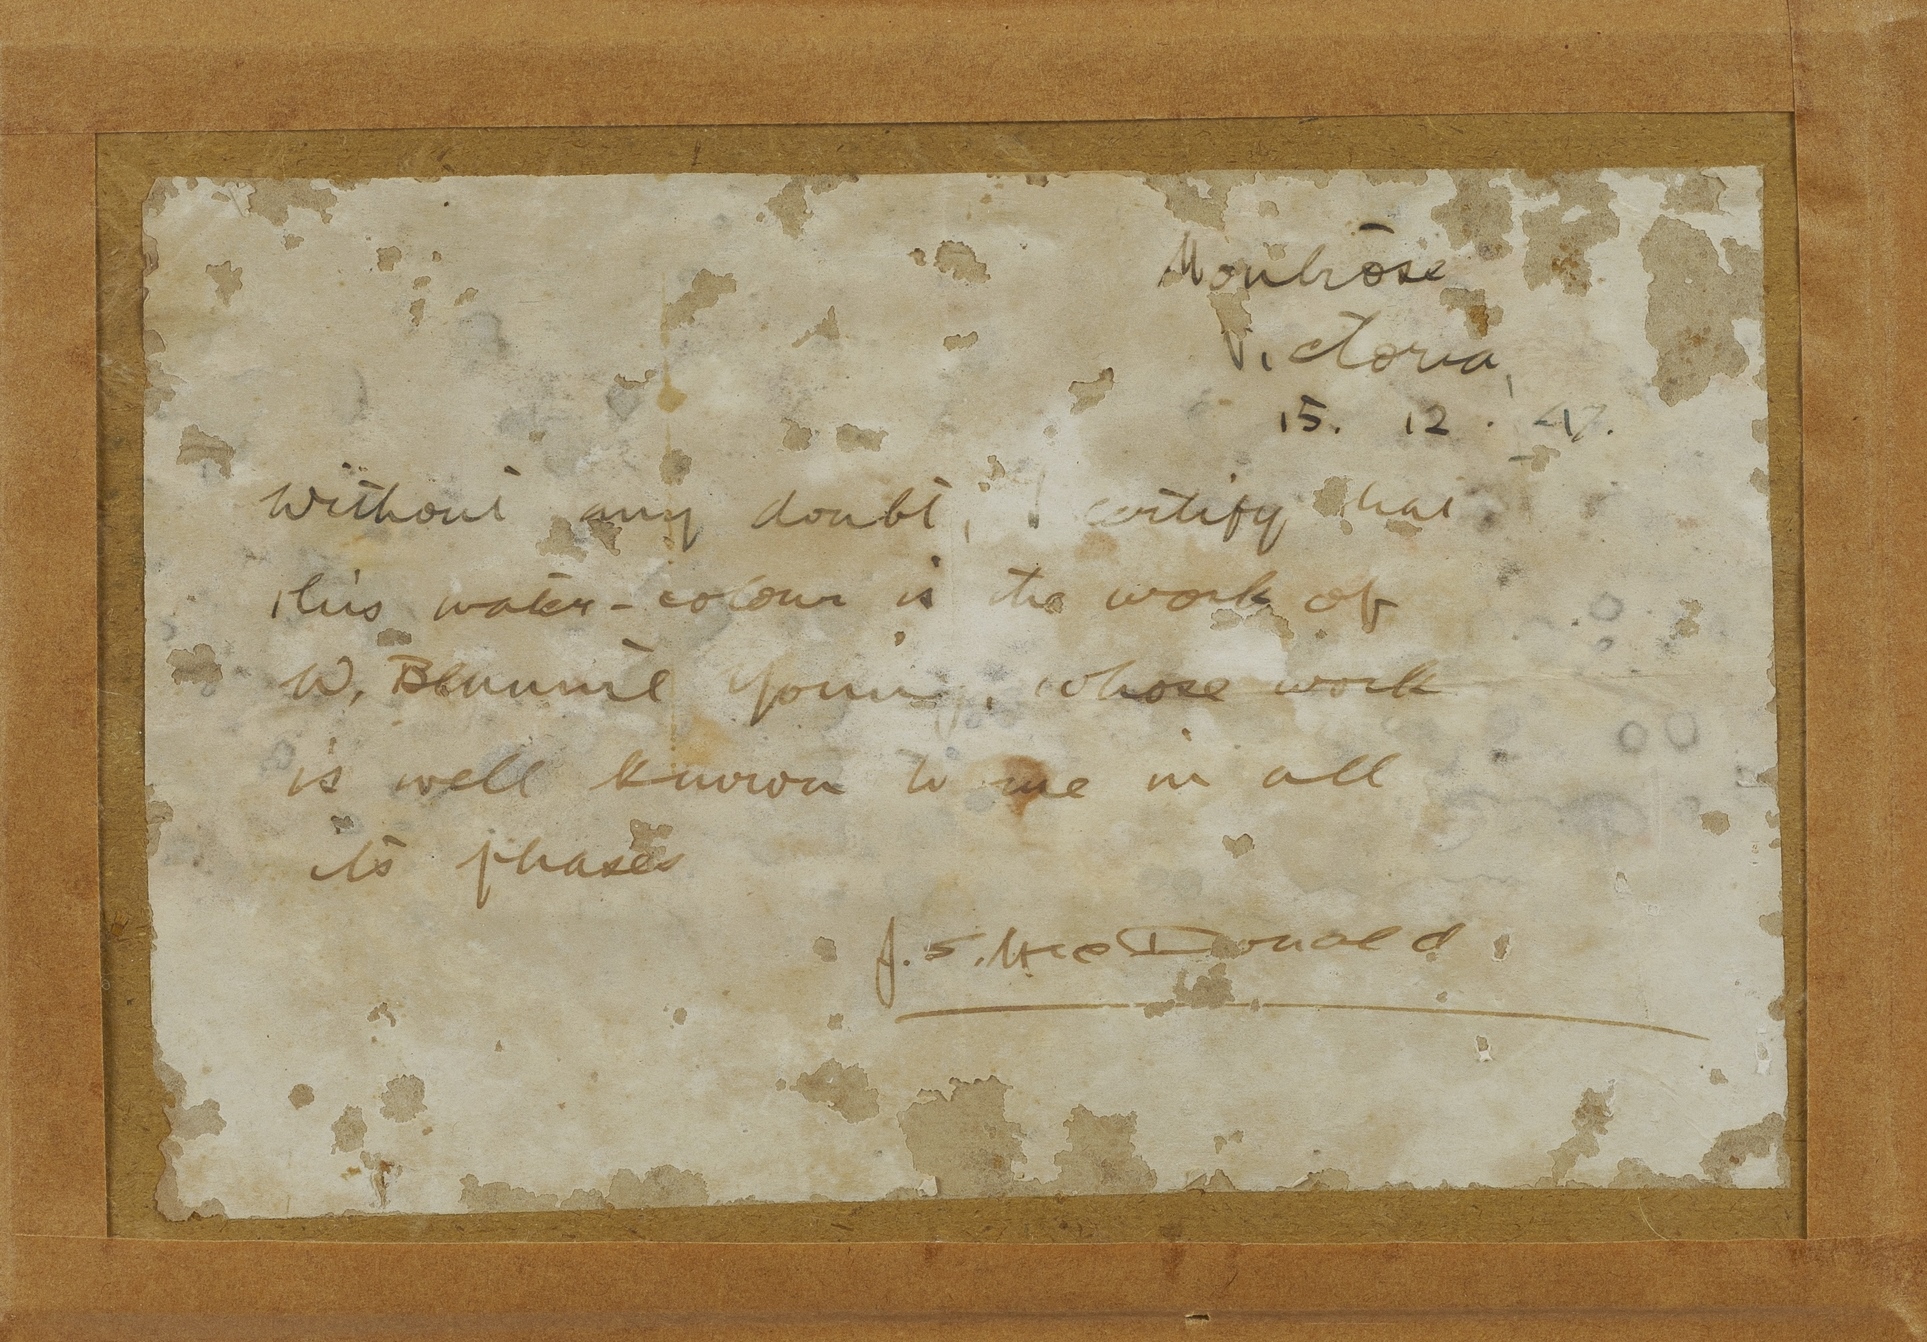 Montrose
Victoria,
15. 12. 47.
Without any doubt, I certify that
this water-colour is the work of
W. Blamire Young, whose work
is well known to me in all
its phases
J. S. MacDonald